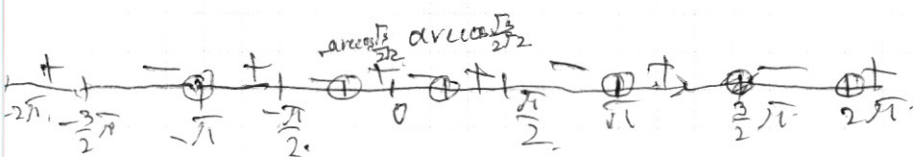 -arccos √3/2√2 arccos √3/2√2
+ − + − + − + − + − +
-2π -3/2 π -π -π/2 0 π/2 π 3/2 π 2π